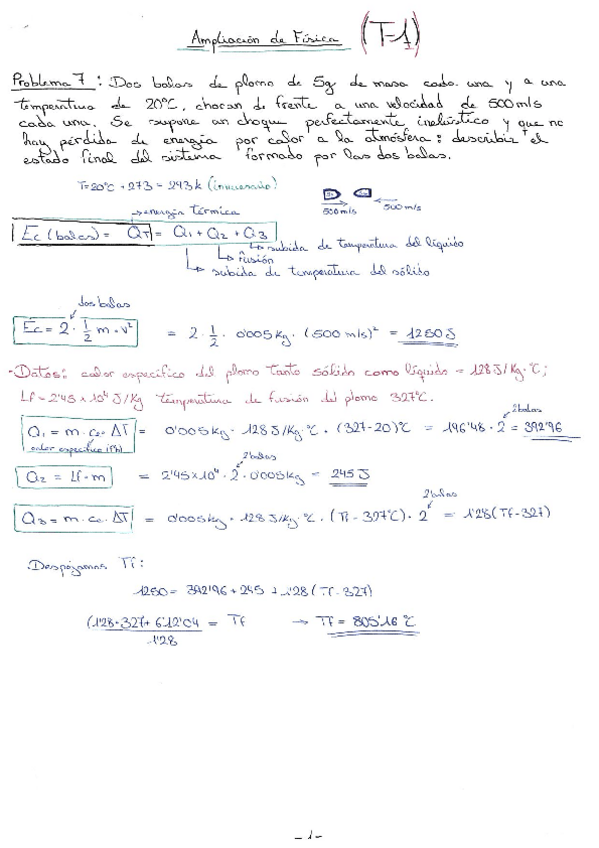 Ampliación de Física (T-1)
Problema 7: Dos balas de plomo de 5g de masa cada una y a una
temperatura de 20ºC, chocan de frente a una velocidad de 500 m/s
cada una. Se supone un choque perfectamente inelástico y que no
hay pérdida de energía por calor a la atmósfera: describir el
estado final del sistema formado por las dos balas.
T=20ºC + 273 = 293k (innecesario)
500 m/s 500 m/s
→ energía térmica
Ec (balas) = QT = Q1 + Q2 + Q3
subida de temperatura del líquido
fusión
subida de temperatura del sólido
dos balas
Ec = 2 · 1/2 m · v² = 2 · 1/2 · 0'005 Kg · (500 m/s)² = 1250 J
- Datos: calor específico del plomo tanto sólido como líquido = 128 J/Kg·ºC;
Lf = 2'45 x 10⁴ J/Kg temperatura de fusión del plomo 327ºC.
2 balas
Q1 = m · ce · ΔT = 0'005 Kg · 128 J/Kg·ºC · (327-20)ºC = 196'48 · 2 = 392'96
calor específico (Pb)
2 balas
Q2 = Lf · m = 2'45x10⁴ · 2 · 0'005 Kg = 245 J
2 balas
Q3 = m · ce · ΔT = 0'005 Kg · 128 J/Kg·ºC · (Tf - 327ºC) · 2 = 1'28 (Tf - 327)
Despejamos Tf:
1250 = 392'96 + 245 + 1'28 (Tf - 327)
(1'28 · 327 + 612'04 = Tf → Tf = 805'16 ºC
1'28
- 1 -